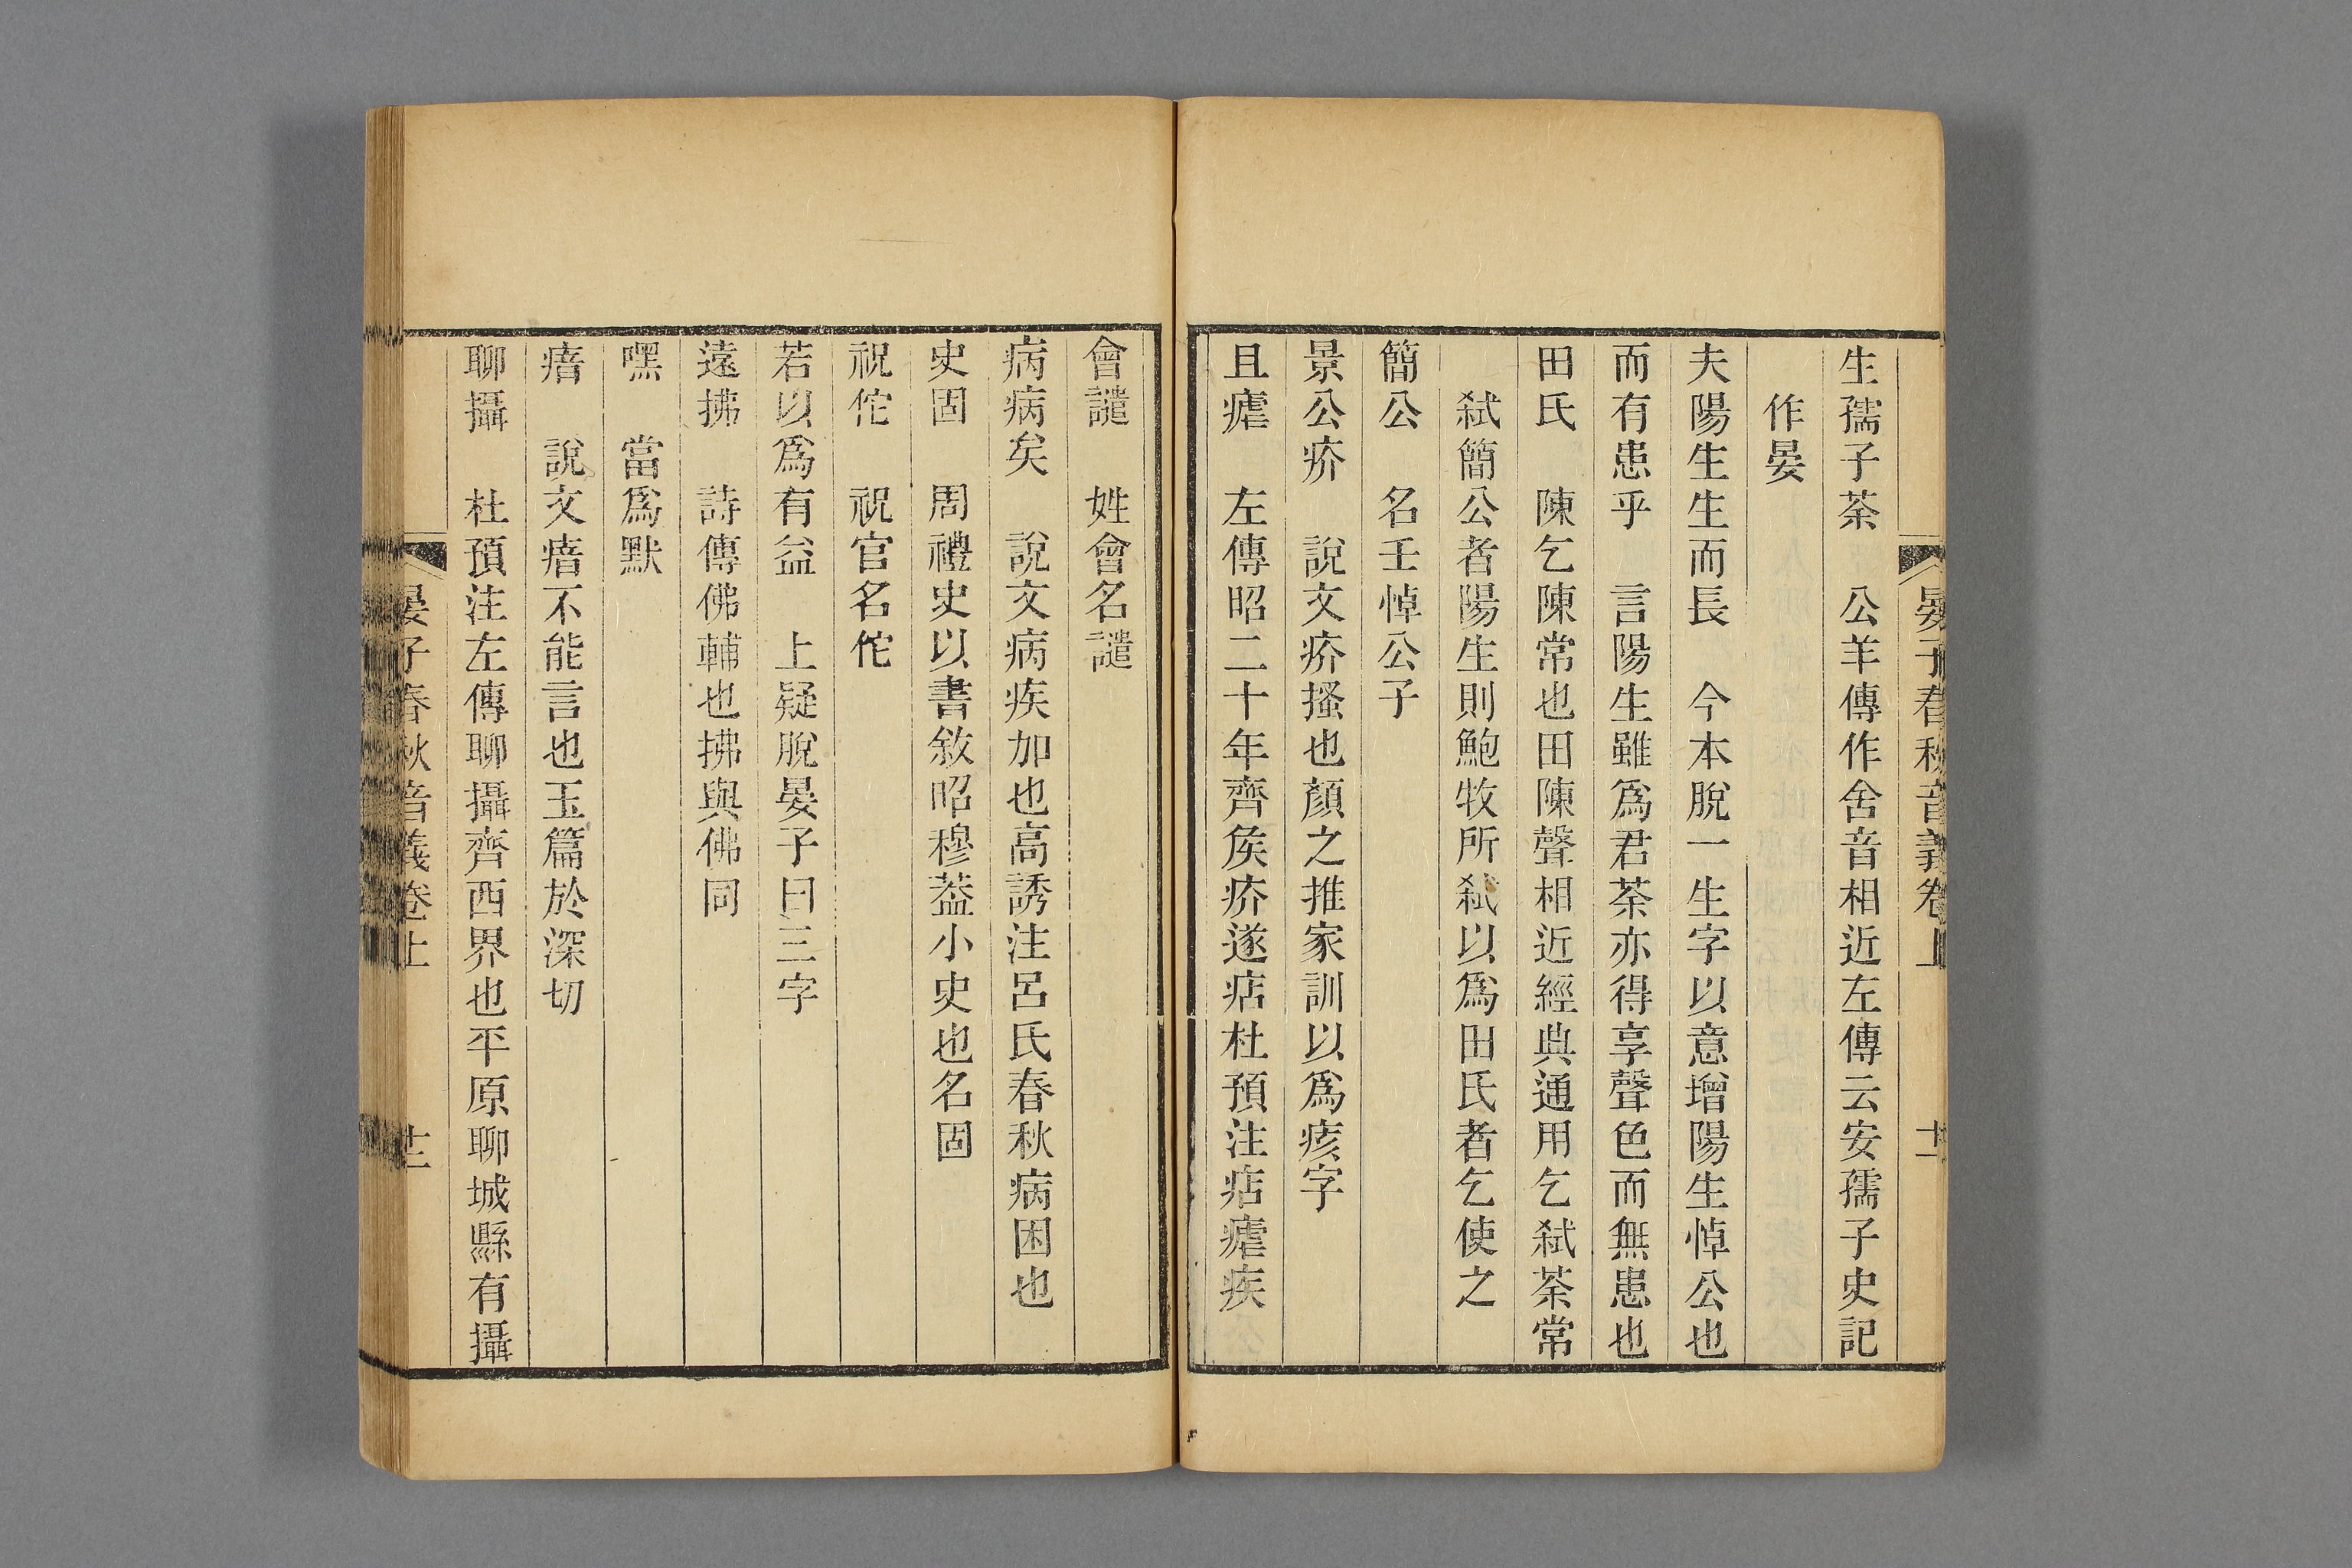 晏子春秋音義卷上 十二
生孺子荼 公羊傳作舍音相近左傳云安孺子史記
作晏
夫陽生生而長 今本脫一生字以意增陽生悼公也
而有患乎 言陽生雖爲君荼亦得享聲色而無患也
田氏 陳乞陳常也田陳聲相近經典通用乞弒荼常
弒簡公者陽生則鮑牧所弒以爲田氏者乞使之
簡公 名壬悼公子
景公疥 說文疥搔也顏之推家訓以爲痎字
且瘧 左傳昭二十年齊矦疥遂痁杜預注痁瘧疾
會譴 姓會名譴
病病矣 說文病疾加也高誘注呂氏春秋病困也
史固 周禮史以書敘昭穆葢小史也名固
祝佗 祝官名佗
若以爲有益 上疑脫晏子曰三字
遠拂 詩傳佛輔也拂與佛同
嘿 當爲默
瘖 說文瘖不能言也玉篇於深切
聊攝 杜預注左傳聊攝齊西界也平原聊城縣有攝
晏子春秋音義卷上 十三